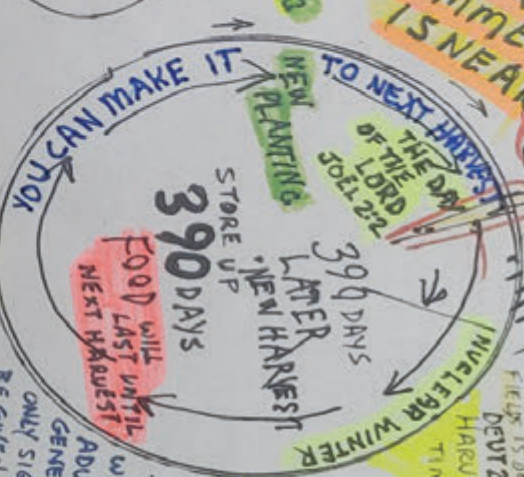 ISNEAR
YOU CAN MAKE IT TO NEXT HARVEST
NEW
PLANTING
THE DAY
OF THE
LORD
JOEL 2:2
390 DAYS
LATER
"NEW HARVEST
STORE UP
390 DAYS
FOOD WILL
LAST UNTIL
NEXT HARVEST
NUCLEAR WINTER
DEUT 2
HARV
TIM
GENE
ONLY SIG